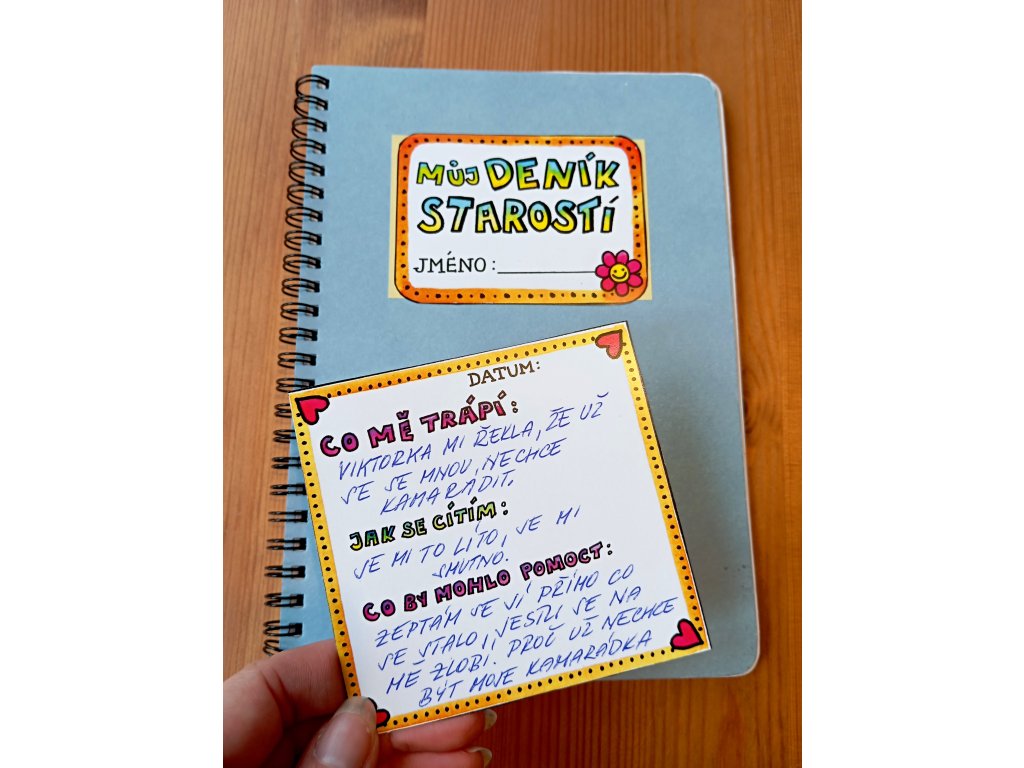 MŮJ DENÍK
STAROSTÍ
JMÉNO:
DATUM:
CO MĚ TRÁPÍ:
VIKTORKA MI ŘEKLA, ŽE UŽ
SE SE MNOU, NECHCE
KAMARÁDIT.
JAK SE CÍTÍM:
JE MI TO LÍTO, JE MI
SMUTNO.
CO BY MOHLO POMOCT:
ZEPTÁM SE JÍ PŘÍMO CO
SE STALO, JESTLI SE NA
MĚ ZLOBÍ. PROČ UŽ NECHCE
BÝT MOJE KAMARÁDKA